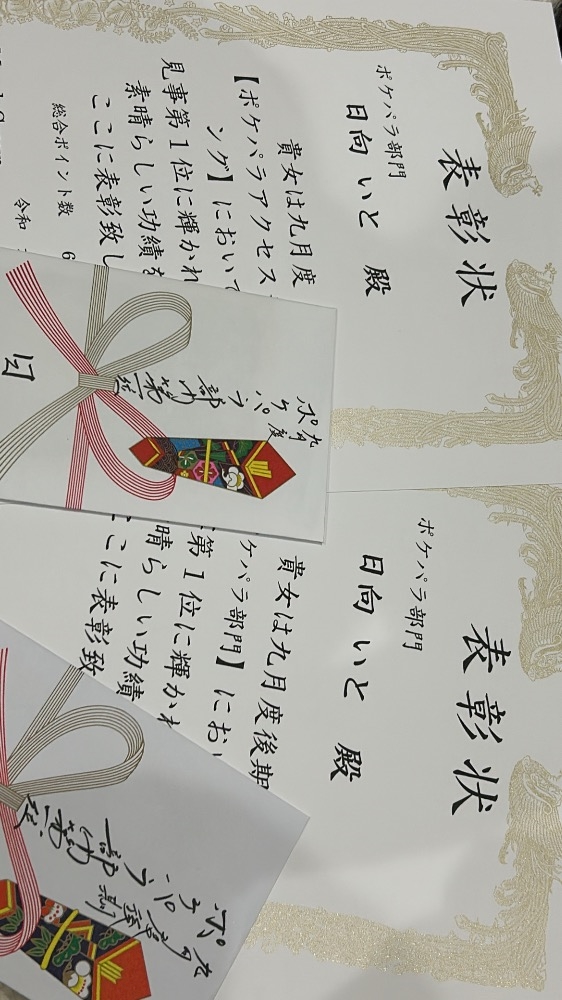 表彰状
ポケパラ部門
日向 いと 殿
貴女は九月度
【ポケパラアクセス
ング】において
見事第1位に輝かれ
素晴らしい功績を
ここに表彰致し
総合ポイント数 6
令和
九月度
ポケパラ
部門第一位
日
表彰状
ポケパラ部門
日向 いと 殿
貴女は九月度後期
ケパラ部門】におい
第1位に輝かれ
晴らしい功績
こに表彰致
九月度後期
ポケパラ
部門第一位